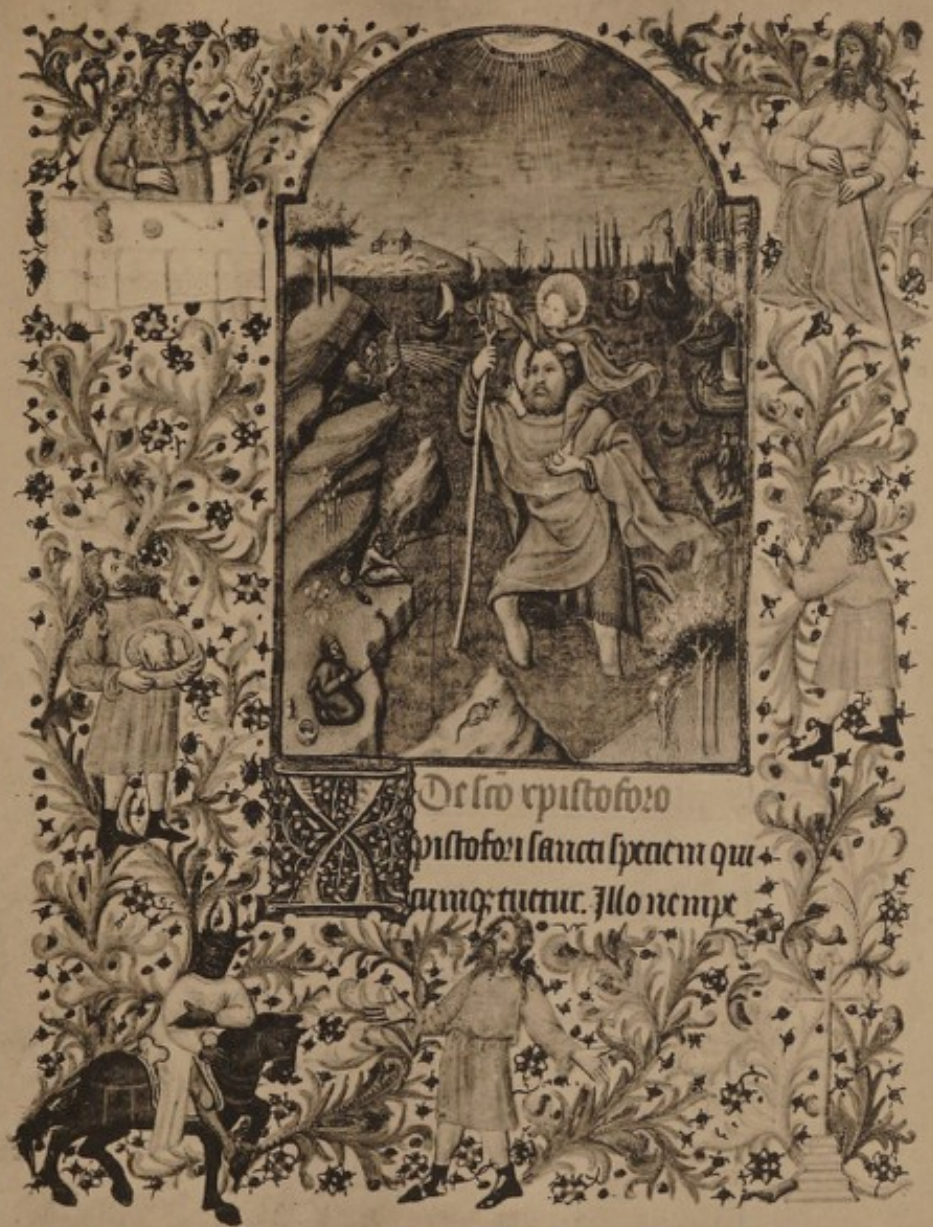 De scō xpistoforo
Xpistofori sancti speciem qui
cumq; tuetur. Illo nempe